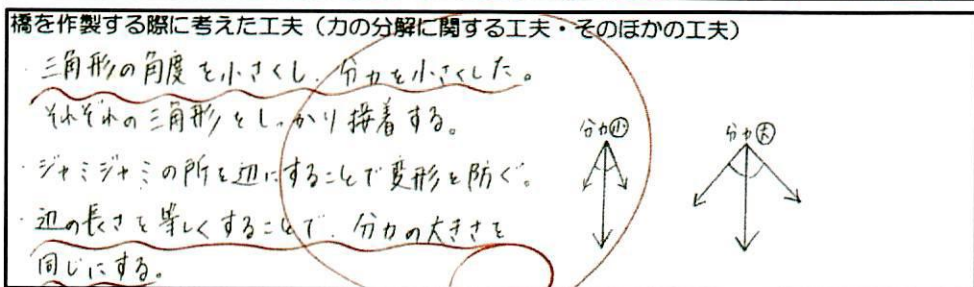 橋を作製する際に考えた工夫（力の分解に関する工夫・そのほかの工夫）
・三角形の角度を小さくし、分力を小さくした。
それぞれの三角形をしっかり接着する。
・ジャミジャミの所を辺にすることで変形を防ぐ。
・辺の長さを等しくすることで、分力の大きさを
同じにする。
分力小
分力大